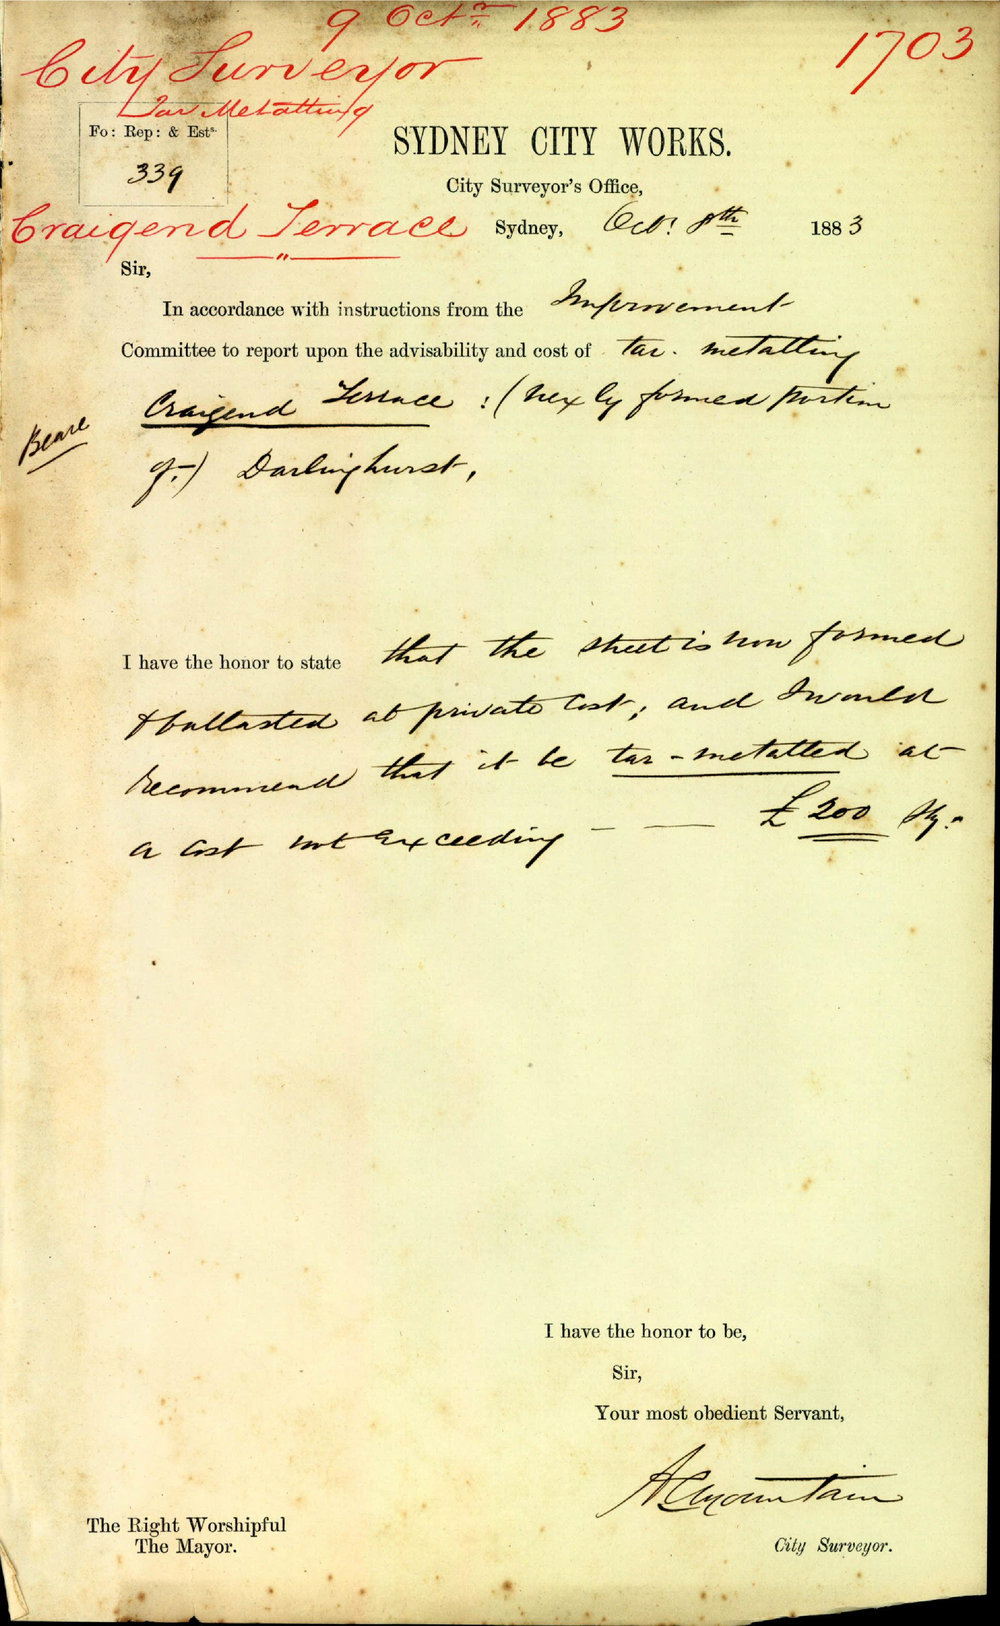 9 Octr 1883
1703
City Surveyor
Tar Metalling
Fo: Rep: & Ests.
339
SYDNEY CITY WORKS.
City Surveyor's Office,
Craigend Terrace
Sydney, Oct: 8th 1883
Sir,
In accordance with instructions from the Improvement
Committee to report upon the advisability and cost of tar-metalling
Craigend Terrace: (newly formed portion
Beare
of-) Darlinghurst,
I have the honor to state that the street is now formed
& ballasted at private cost; and I would
recommend that it be tar-metalled at
a cost not exceeding - — £200 Stg:
I have the honor to be,
Sir,
Your most obedient Servant,
ACMountain
The Right Worshipful
The Mayor.
City Surveyor.